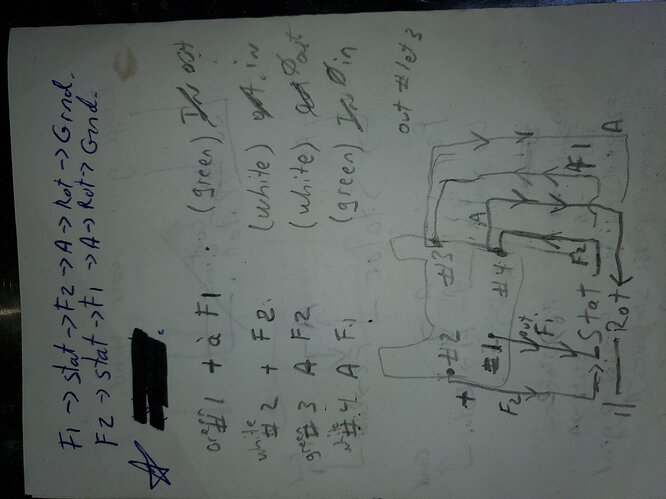 F1 -> Stat -> F2 -> A -> Rot -> Grnd.
F2 -> Stat -> F1 -> A -> Rot -> Gnd.
green
#1 + à F1. (green) out
white
#2 + F2. (white) in
green
#3 A F2 (white) out
white
#4 A F1. (green) in
out #1 et 3
A
F1
A
F2
#3
#4
#2
#1
+
out
F1
F2
Stat
Rot